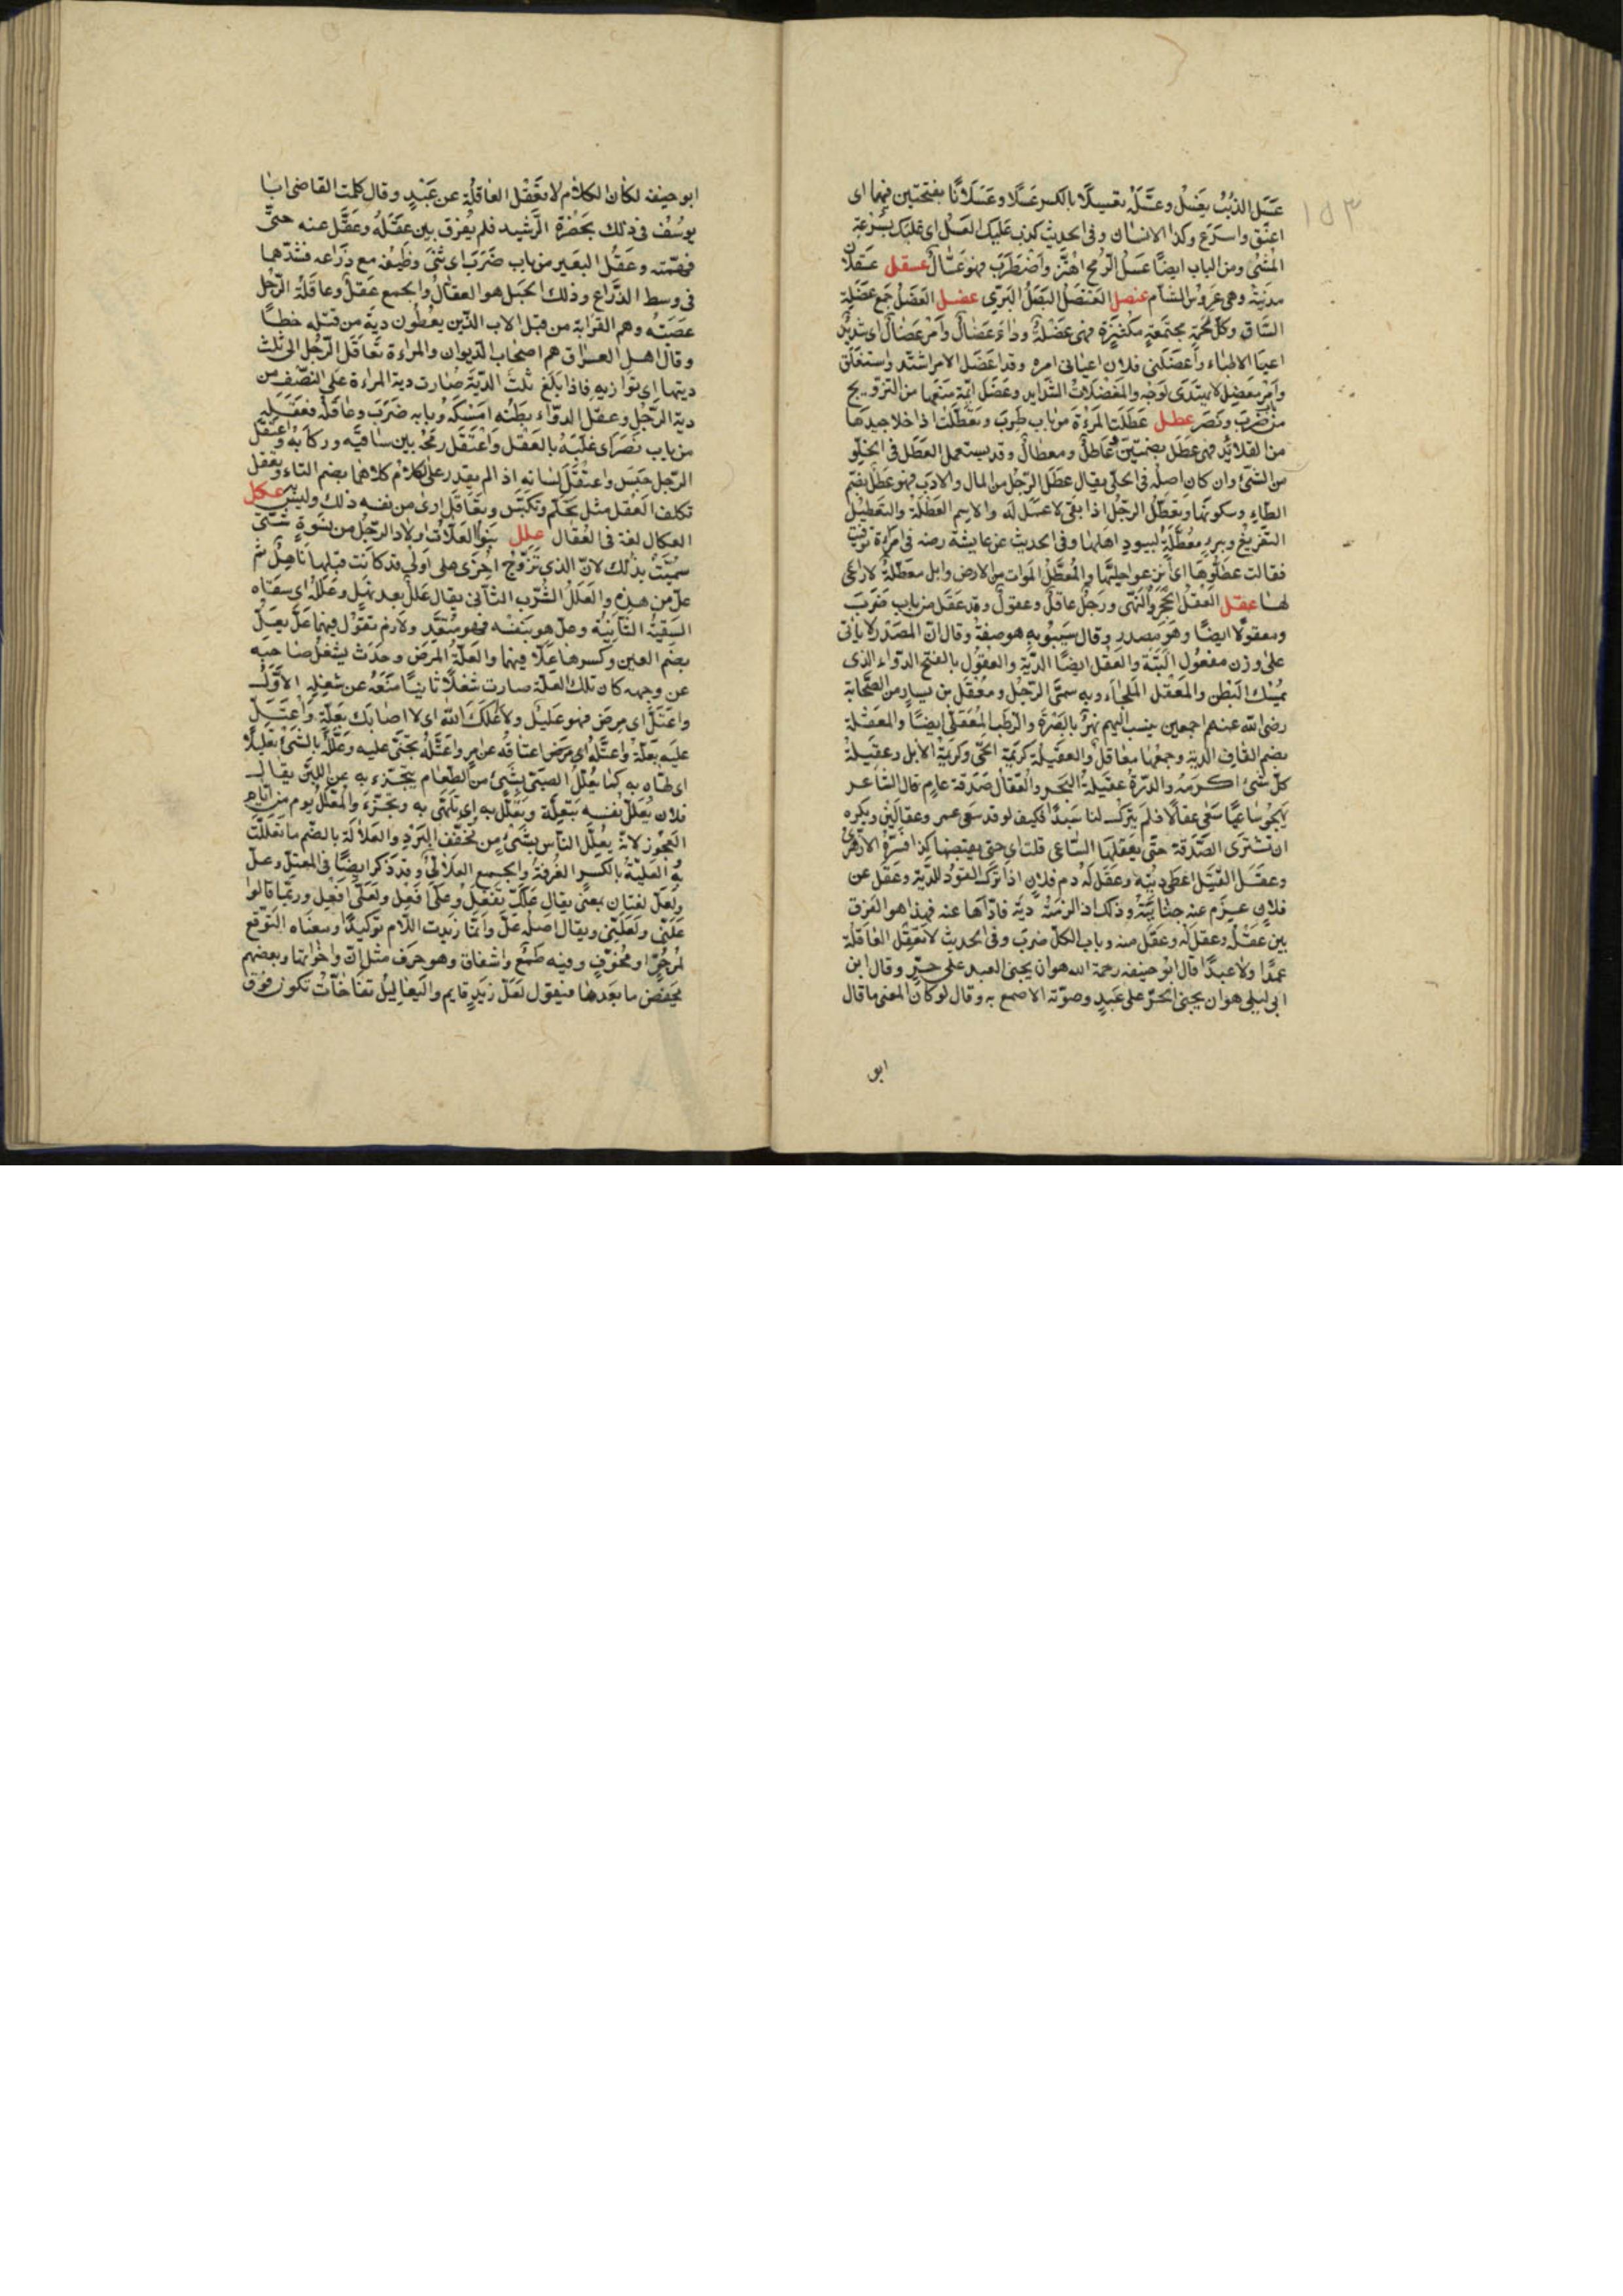 ١٥٣
عَسَل الذئبُ يَعْسِلُ وعسَّله تعسيلًا بالكسر عَسَلًا وعَسَلَانًا بفتحتين فيهما اى
اعنق واسرَع وكذا الانسان وفى الحديث كذب عَليْك العسَل اى عليك بسُرعةِ
المَشْىِ ومن الباب ايضًا عسَل الرّمح اهتزّ واضطرَب فهو عَسّالٌ عسقل عسقلان
مدينة وهى عَروسُ الشأم عنصل العُنصُلُ البَصَلُ البَرّى عضل العَضَلُ جمع عَضَلة
السّاق وكلّ لحمةٍ مجتمعةٍ مكتنزةٍ فهى عَضَلةٌ وداءٌ عُضالٌ وأمرٌ عُضالٌ اى شديدٌ
اعيا الاطباء وأعضَلنى فلان اعيانى امره وقد اعضَل الامر اشتدّ واستغلَق
وأمرٌ معضِلٌ لا يهتدَى لوَجهه والمُعضلاتُ الشدايد وعضَل ايّمه منعَها من التزويج
من ضرَبَ ونصَر عطل عَطِلَت المَرْءَة من باب طرِبَ وتعَطّلَت اذا خلا جيدها
من القلائد فهى عُطُل بضمّتين وعاطلٌ ومعطالٌ وقد يستعمل العطَل فى الخلو
من الشئ وان كان اصله فى الحلى يقال عطِل الرّجُل من المال والادب فهو عُطْل بضم
الطاء وسكونها وتعَطّل الرجُل اذا بقى لا عمل له والاسم العُطلة والتعطيلُ
التفريغُ وبير معُطّلة لبيود اهلها وفى الحديث عن عايشة رضه فى امرءة توفيت
فقالت عطِّلوها اى انزعوا حليَّها والمُعطّلُ الموات من الارض وابل معطّلةٌ لا راعى
لها عقل العَقلُ الحَجْرُ والنّهى ورَجُل عاقلٌ وعقولٌ وقد عقَل من باب ضرَبَ
ومعقولًا ايضًا وهو مصدر وقال سيبُويه هو صفة وقال انّ المصْدَر لا يأتى
على وزن مفعُول البَتّة والعَقل ايضًا الدّية والعَقُولُ بالفتح الدّواء الذى
يمسِك البَطن والمَعْقل الملجاء وبه سمّى الرّجُل ومعْقل بن يسارٍ من الصّحابة
رضى الله عنهم اجمعين ينسب اليهم نهرٌ بالبَصْرة والرّطَب المَعقلىّ ايضًا والمعقُلة
بضم القاف الدّية وجمعُها معاقل والعقيلة كريمة الحىّ وكريمة الابل وعقيلة
كلّ شئٍ اكرَمُه والدّرّة عقيلة البحر والعِقال صَدَقة عامٍ قال الشاعر
يهجوُ ساعيًا سعَى عقالًا فلم يترُك لنا سَبَدًا فكيف لو قد سعَى عمر وعقالَين ويكره
ان تشترَى الصّدَقة حتّى يعقِلَها السّاعى قلت اى حتى يقبضها كذا فسّرهُ الازهرىّ
وعقَل القتيل اعطى ديته وعقَل لَهُ دم فلانٍ اذا ترَك القوَد للدّية وعَقل عن
فلانٍ غرِم عنه جنايتَه وذلك اذا لزمَتْه ديةٌ فادّاها عنه فهذا هو الفرق
بين عقَلهُ وعقل له وعقَل عنه وباب الكلّ ضربَ وفى الحديث لا تعقِلُ العاقلة
عمدًا ولا عبدًا قال ابُو حنيفه رحمة الله هو ان يجنى العبد على حرٍّ وقال ابن
ابى ليلى هو ان يجنىَ الحرّ على عَبدٍ وصوّته الاصمع به وقال لو كان المعنى ما قال
ابو
ابو حنيفه لكان الكلام لا تَعْقل العاقلة عن عَبْدٍ وقال كلمت القاضى ابا
يوسُف فى ذلك بحَضْرة الرّشيد فلم يُفرق بين عقَلهُ وعقَل عنه حتىّ
فهّمته وعقَلُ البَعير من باب ضَرَبَ اى ثنىَ وظيفه مع ذراعه فشدّهما
فى وسط الذّراع وذلك الحَبل هو العقال والجمع عُقلٌ وعاقلةُ الرّجُل
عصَبَتُه وهم القرابة من قبل الاب الذين يعُطون دية من قتله خطأً
وقال اهل العراق هم اصحاب الدّيوان والمراءة تعَاقل الرّجُل الى ثلث
ديتها اى توازيه فاذا بلَغ ثلُث الدّية صارت دية المراءة على النصّف من
دية الرّجُل وعقل الدوّاء بطنه امسَكهُ وبابه ضرَبَ وعاقله فعَقَله
من باب نصَر اى غلبَهُ بالعَقل واعْتقَل رمحهُ بين ساقيه وركابه واعتقل
الرّجل حبَس واعتُقلَ لسانه اذا لم يقدر على الكلام كلاهما بضم التاء وتعقل
تكلف العَقل مثل تحَلّم وتكيّس وتعَاقل ارىٰ من نفسه ذلك وليسَ به عكل
العكال لغة فى العقال علل بنُوا العَلّات اولاد الرّجُل من نسوةٍ شتّىَ
سمّيَتْ بذلك لانّ الذى تزوّج اخرَى على اولى قد كانت قبلها ناهلٌ ثم
علّ من هذه والعَلَلُ الشُرْب الثانى يقال علَلٌ بعد نهلٍ وعلّهُ اى سقاه
السقيةَ الثانية وعلّ هو بنفسه فهو متعدّ ولازم تقوُل فيهما علّ يعلّ
بضم العين وكسرها علًّا فيهما والعلّة المرَض وحدَث يشغلُ صاحبه
عن وجهه كان تلك العلّة صارت شغلًا ثانيًا منَعَهُ عن شغله الاوّل
واعتلّ اى مرِض فهو عليل ولا اعلكَ الله اى لا اصابك بعلّةٍ واعتلّ
علَيه بعلّةٍ واعتلّه اى مرَض اعتاقه عن امرٍ واعتلّه تجنّى عليه وعلّله بالشئ تعليلًا
اى لهّاه به كما يعُلل الصّبىّ بشئٍ من الطّعام يتجزّء به عن اللبن يقال
فلان يُعلّل نفسه بتعلّة وتعلّل به اى تلهّى به وتجزّء والمُعلّلُ يوم من ايام
العجُوز لانّه يعلّل الناس بشىءٍ من تخفيف البَرْدِ والعلالة بالضّم ما تعللّت
به العلّيّة بالكسر الغُرفةُ والجمع العلالىّ وقد ذكر ايضًا فى المعتلّ وعلّ
ولعَلّ لغتان بمعنًى يقال علّك تفعَلُ وعلّى افعَل ولعَلّى افعَل وربّما قالوا
علّنى ولعَلّنى ويقال اصله علّ وانّما زيدت اللام توكيدًا ومعناه التوقع
لمرجُوٍّ او مخُوفٍ وفيه طمَع واشفاق وهو حرَف مثل انّ واخواتها وبعضهم
يخفض ما بعَدها فيقول لعَلّ زيدٍ قايم واليَعاليلُ نفاخات تكون فوق